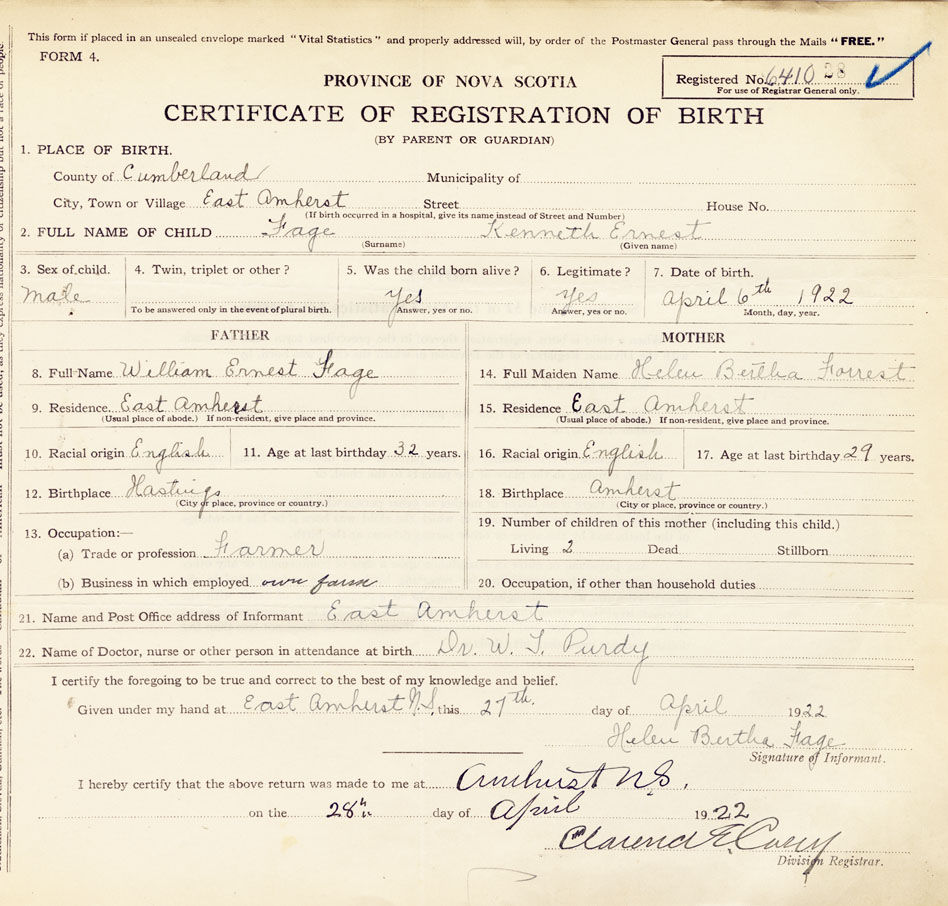 This form if placed in an unsealed envelope marked "Vital Statistics" and properly addressed will, by order of the Postmaster General pass through the Mails "FREE."
FORM 4.
PROVINCE OF NOVA SCOTIA
Registered No. 641028
For use of Registrar General only.
CERTIFICATE OF REGISTRATION OF BIRTH
(BY PARENT OR GUARDIAN)
1. PLACE OF BIRTH.
County of Cumberland Municipality of
City, Town or Village East Amherst Street House No.
(If birth occurred in a hospital, give its name instead of Street and Number)
2. FULL NAME OF CHILD Fage Kenneth Ernest
(Surname) (Given name)
3. Sex of child. 4. Twin, triplet or other? 5. Was the child born alive? 6. Legitimate? 7. Date of birth.
Male Yes Yes April 6th 1922
To be answered only in the event of plural birth. Answer, yes or no. Answer, yes or no. Month, day, year.
FATHER MOTHER
8. Full Name William Ernest Fage 14. Full Maiden Name Helen Bertha Forrest
9. Residence. East Amherst 15. Residence East Amherst
(Usual place of abode.) If non-resident, give place and province. (Usual place of abode.) If non-resident, give place and province.
10. Racial origin English 11. Age at last birthday 32 years. 16. Racial origin English 17. Age at last birthday 29 years.
12. Birthplace Hastings 18. Birthplace Amherst
(City or place, province or country.) (City or place, province or country.)
13. Occupation:— 19. Number of children of this mother (including this child.)
(a) Trade or profession Farmer Living 2 Dead Stillborn
(b) Business in which employed own farm 20. Occupation, if other than household duties
21. Name and Post Office address of Informant East Amherst
22. Name of Doctor, nurse or other person in attendance at birth Dr. W. T. Purdy
I certify the foregoing to be true and correct to the best of my knowledge and belief.
Given under my hand at East Amherst N.S. this 27th. day of April 1922
Helen Bertha Fage
Signature of Informant.
I hereby certify that the above return was made to me at Amherst N.S.
on the 28th day of April 1922
Division Registrar.